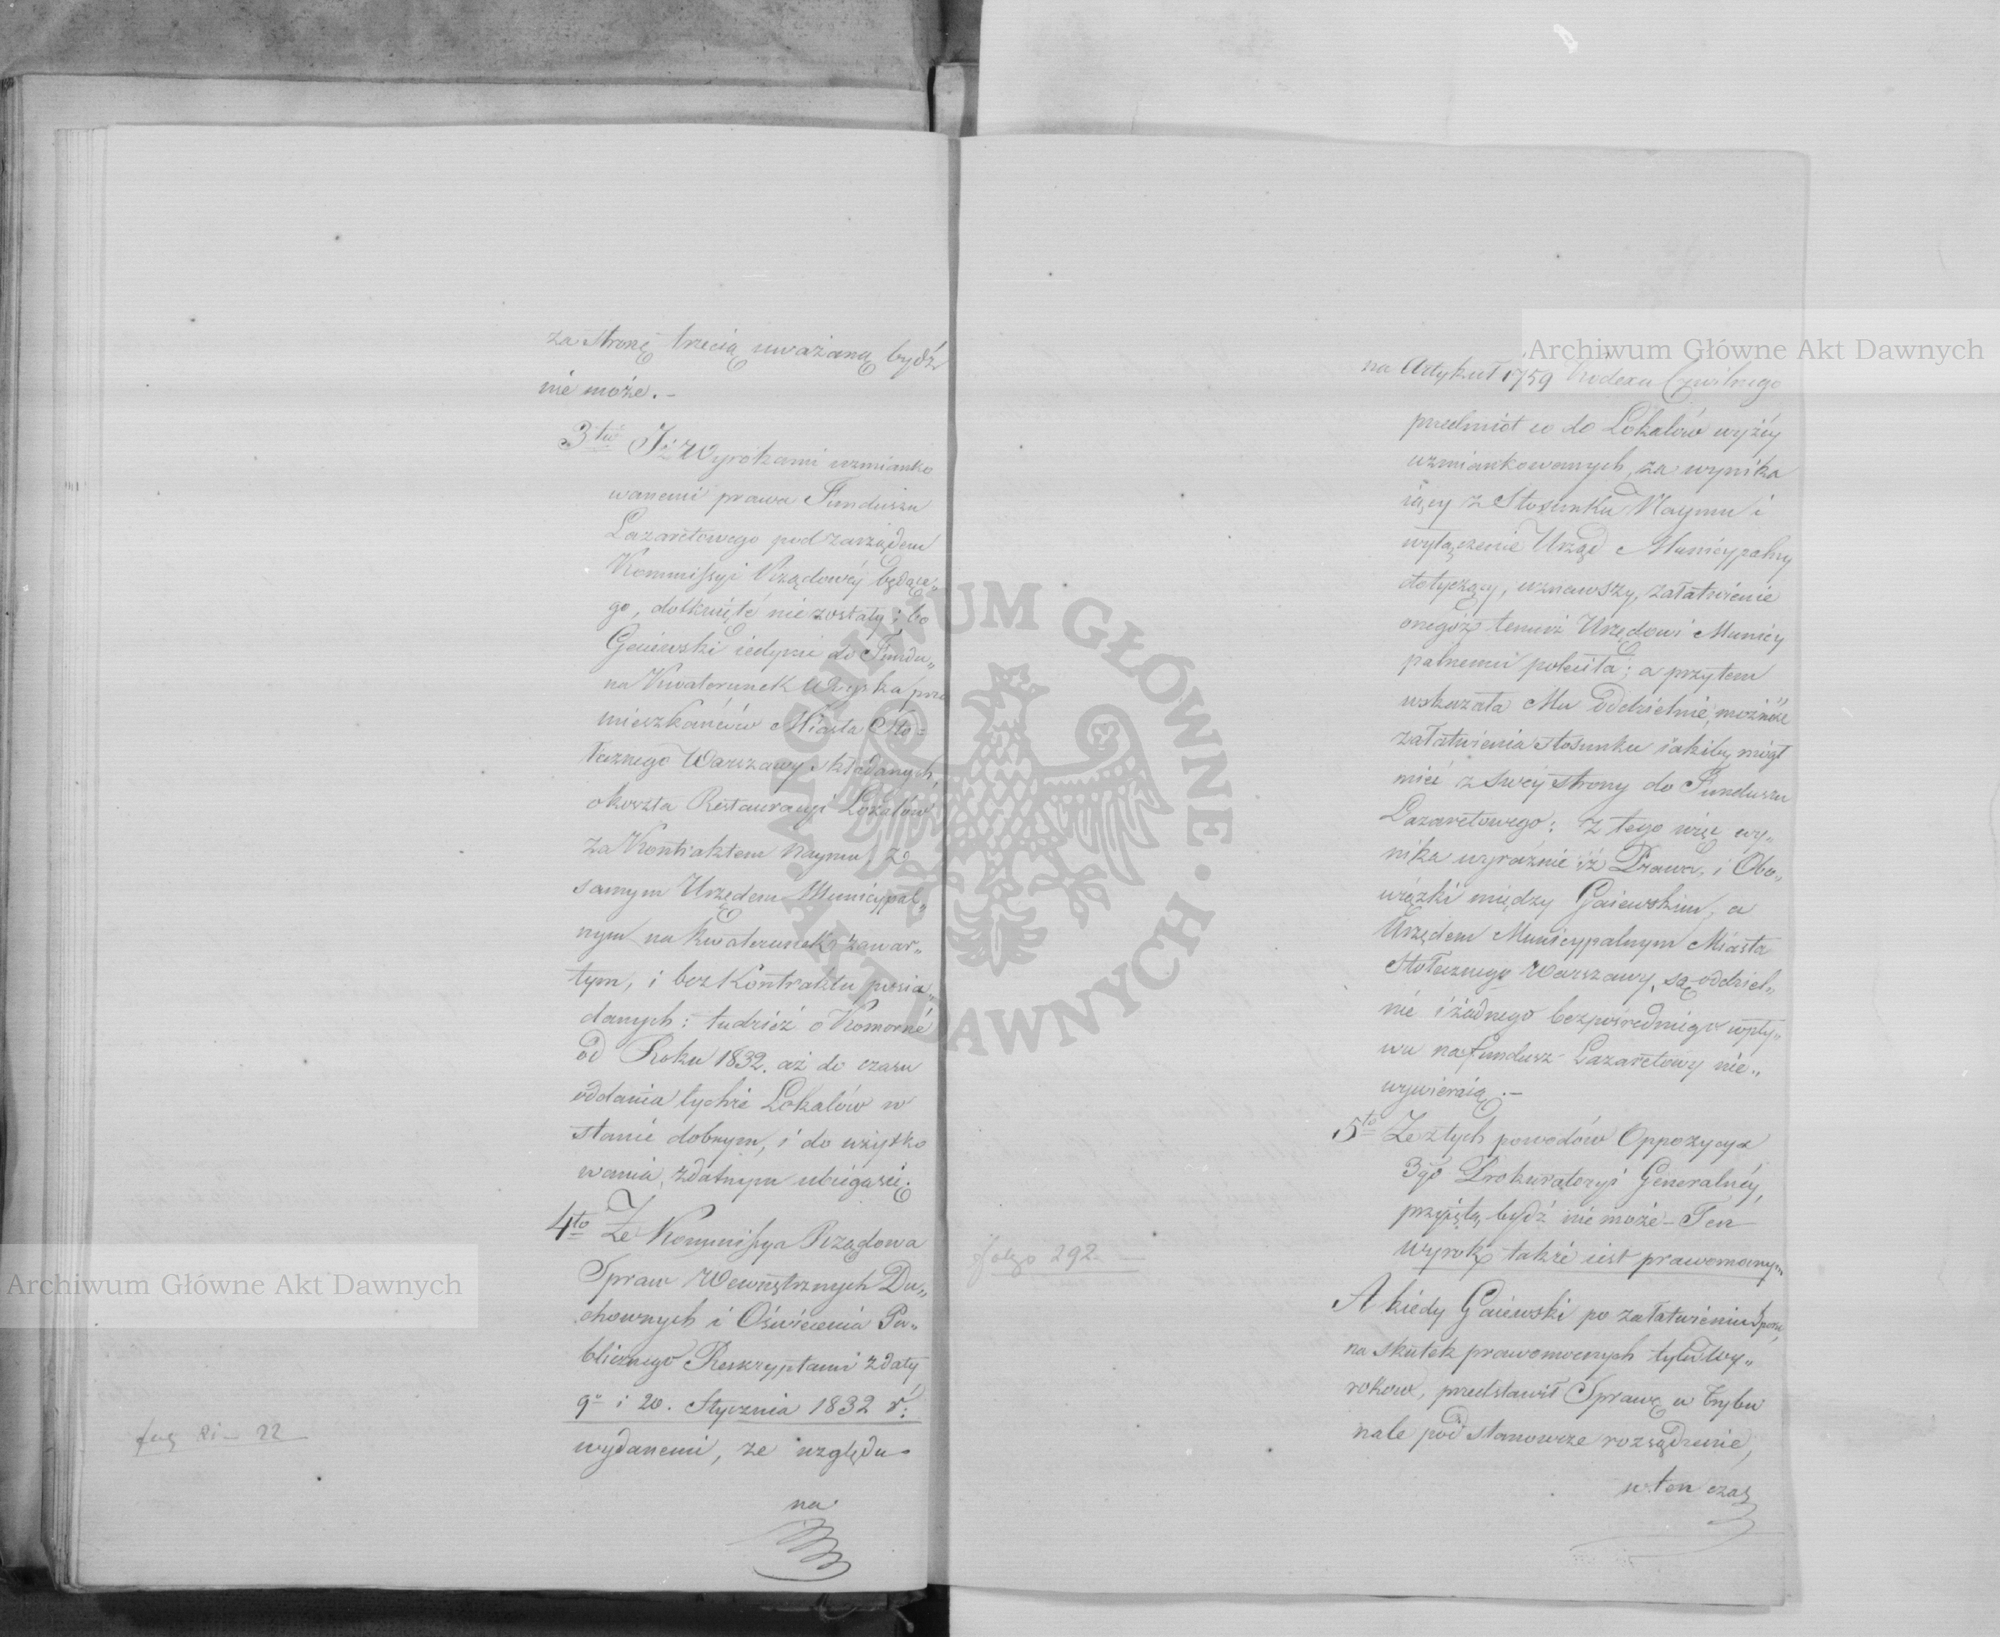 za stronę trzecią uważaną bydź
nie może. –
3tio Iż Wyrokami wzmianko
wanemi prawa Funduszu
Lazaretowego pod zarządem
Kommissyi Rządowey będące„
go, dotknięte nie zostały; bo
Gaiewski iedynie do Fundu„
na Kwaterunek Woyska prze
mieszkańców Miasta Sto=
łecznego Warszawy składanych,
o koszta Restauracyi Lokalów
za Kontraktem Naymu, ze
samym Urzędem Municypal„
nym na kwaterunek zawar„
tym, i bez Kontraktu posia„
danych; tudzież o Komorne
od Roku 1832. aż do czasu
oddania tychże Lokalów w
stanie dobrym, i do użytko
wania zdatnym ubiega się.
4to Że Kommissya Rządowa
Spraw Wewnętrznych Du„
chownych i Oświecenia Pu„
blicznego Reskryptami z daty
9o i 20. Stycznia 1832 r:
wydanemi, ze względu
na
22
na Artykuł 1759 Kodexu Cywilnego
przedmiot co do Lokalów wyżey
wzmiankowanych, za wynika
iący z Stosunku Naymu i
wyłącznie Urząd Municypalny
dotyczący, uznawszy, załatwienie
onegoż temuż Urzędowi Municy
palnemu poleciła; a przytem
wskazała Mu oddzielnie, możność
załatwienia stosunku iakiby mógł
mieć z swey strony do Funduszu
Lazaretowego; z tego więc wy„
nika wyraźnie iż Prawa, i Obo„
wiązki między Gaiewskim, a
Urzędem Municypalnym Miasta
Stołecznego Warszawy, są oddziel„
ne i żadnego bezpośredniego wpły„
wu na fundusz Lazaretowy nie„
wywieraią. –
5to Ze z tych powodów Oppozycya
3go Prokuratoryi Generalney,
przyiętą bydź nie może – Ten
wyrok także iest prawomocnym
folgo 292. –
A kiedy Gaiewski po załatwieniu
na skutek prawomocnych tylu Wy„
roków, przedstawił Sprawę w Trybu
nale pod stanowcze rozsądzenie,
w ten czas
Archiwum Główne Akt Dawnych
Archiwum Główne Akt Dawnych
ARCHIWUM GŁÓWNE · AKT DAWNYCH ·